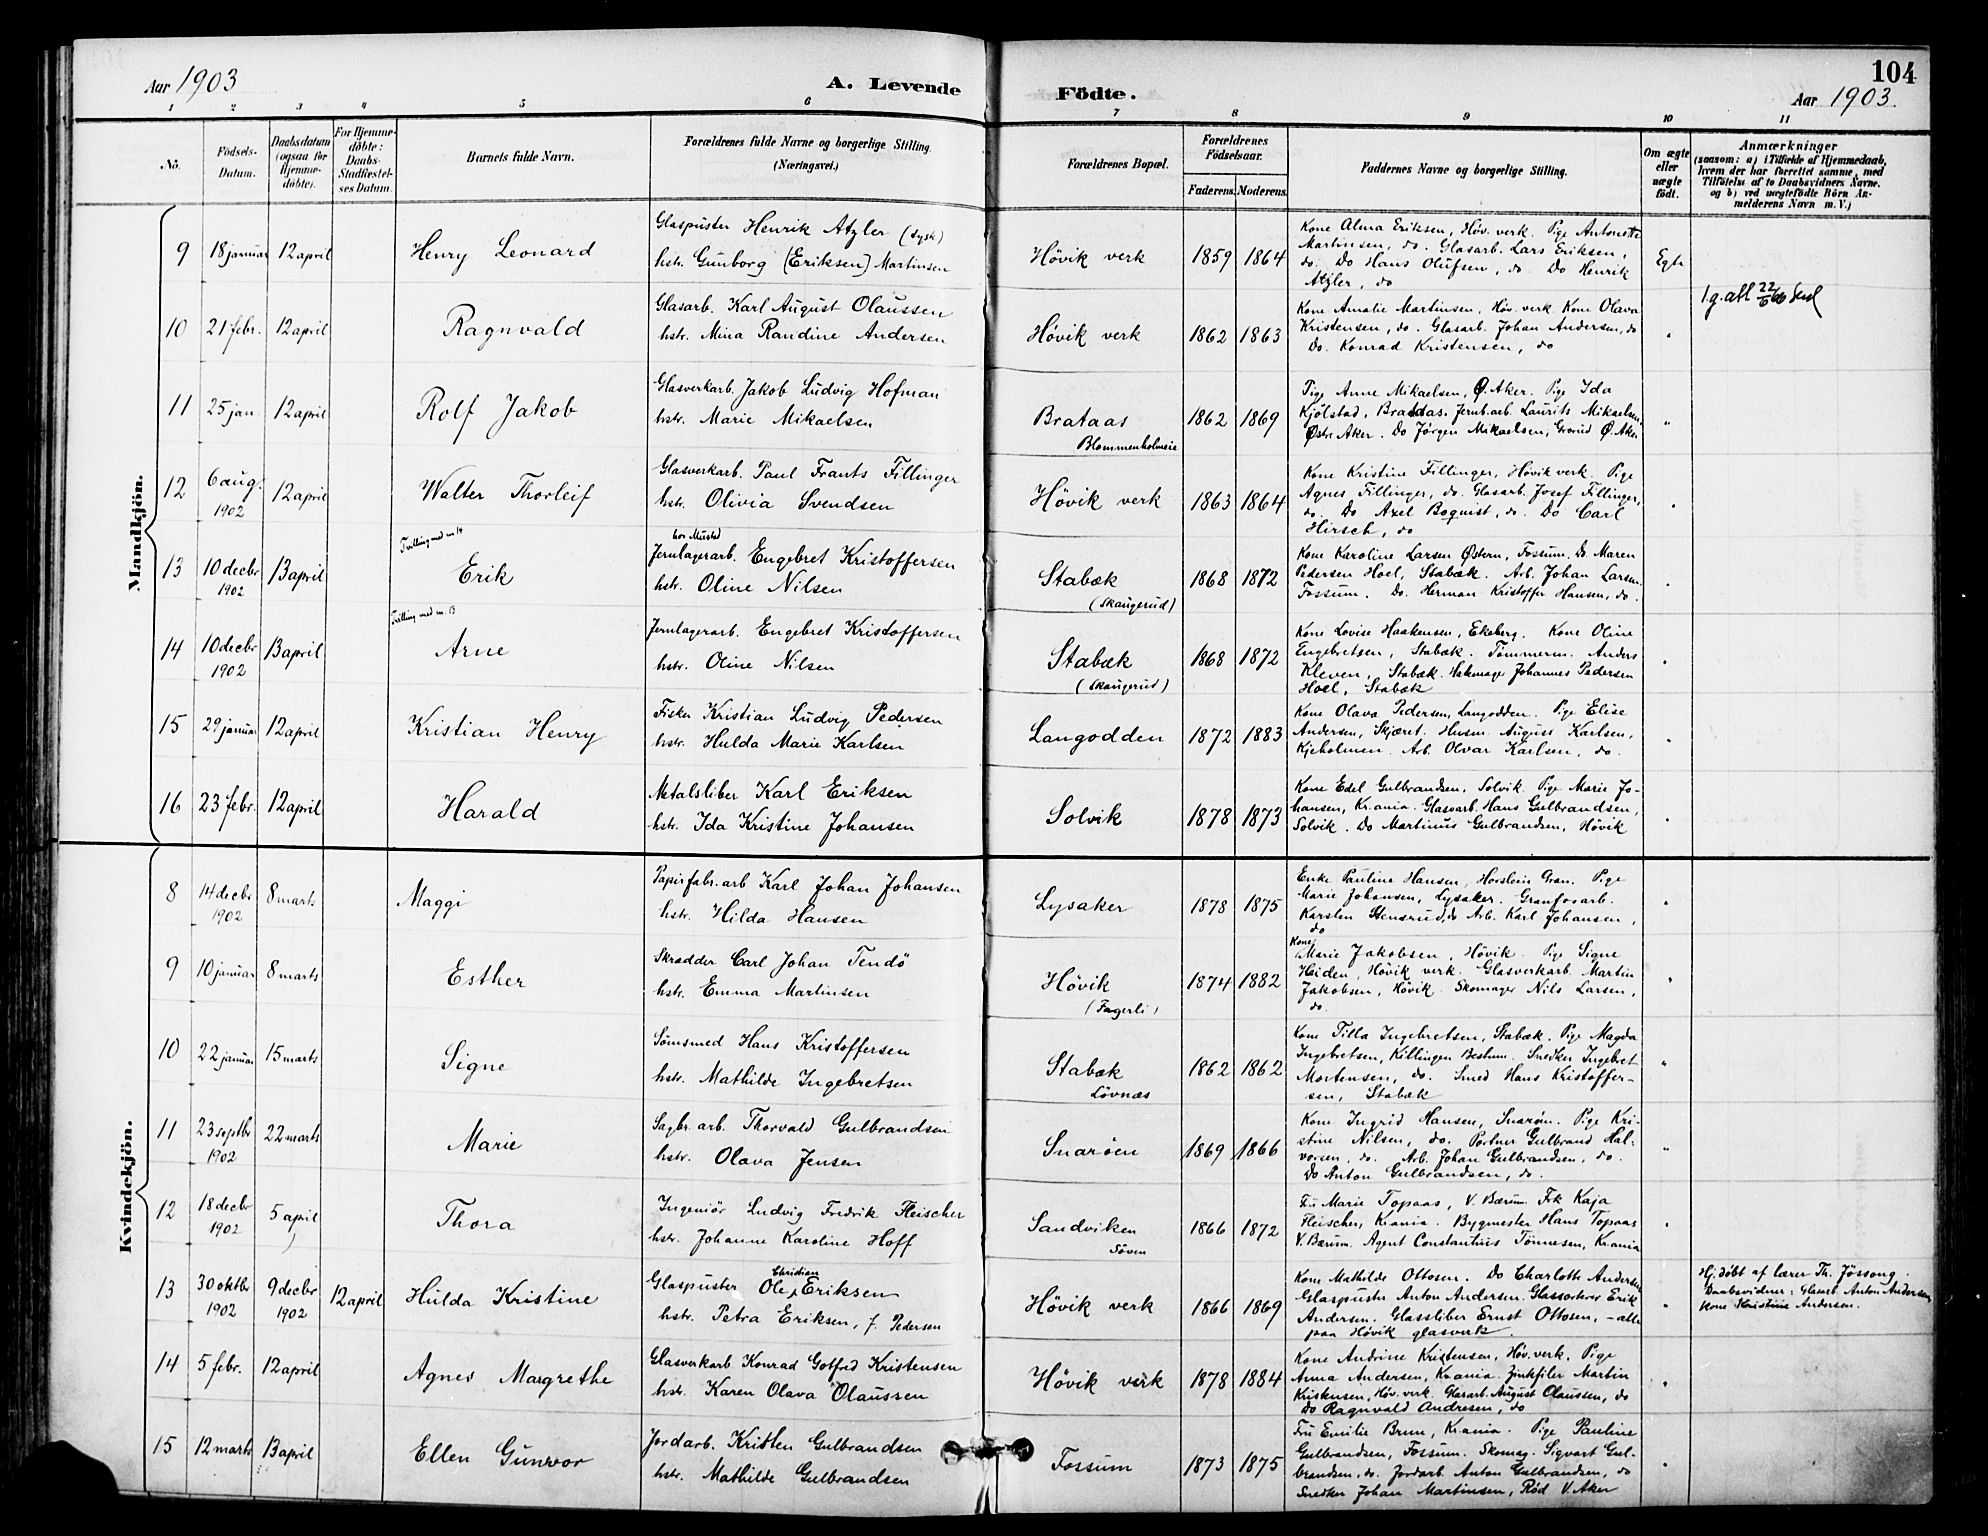 Aar 1903
A. Levende
Födte.
104
Aar 1903.
1 2 3 4 5 6 7 8 9 10 11
No.
Födsels-Datum.
Daabsdatum (ogsaa for Hjemme-döbte).
For Hjemme-döbte: Daabs-Stadfæstel-ses Datum.
Barnets fulde Navn.
Forældrenes fulde Navne og borgerlige Stilling. (Næringsvei.)
Forældrenes Bopæl.
Forældrenes Födselsaar.
Faderens. Moderens.
Faddernes Navne og borgerlige Stilling.
Om ægte eller uægte födt.
Anmærkninger
(saasom: a) i Tilfælde af Hjemmedaab, hvem der har forrettet samme, med Tilföielse af to Daabsvidners Navne, og b) ved uægtefödte Börn An-melderens Navn m. V.)
Mandkjön.
9 18 januar 12 april Henry Leonard
Glaspuster Henrik Atzler (tysk)
hstr. Gunborg (Eriksen) Martinsen
Høvik verk 1859 1864
Kone Alma Eriksen, Höv. verk. Pige Antonette
Martinsen, do. Glasarb. Lars Eriksen,
do. Do Hans Olufsen, do. Do Henrik
Atzler, do
Egte
10 21 febr. 12 april Ragnvald
Glasarb. Karl August Olaussen
hstr. Mina Randine Andersen
Høvik verk 1862 1863
Kone Amalie Martinsen, Höv. verk. Kone Olava
Kristensen, do. Glasarb. Johan Andersen, do
Do. Konrad Kristensen, do
"
11 25 jan. 12 april Rolf Jakob
Glasverkarb. Jakob Ludvig Hofman
hstr. Marie Mikaelsen
Brataas
Blommenholmveie
1862 1869
Pige Anne Mikaelsen, Ø. Aker. Pige Ida
Kjölstad, Brataas. Jernb.arb. Laurits Mikaelsen,
Østre Aker. Do Jörgen Mikaelsen, Grorud Ø. Aker
"
12 6 aug. 1902 12 april Walter Thorleif
Glasverkarb. Paul Frants Fillinger
hstr. Olivia Svendsen
Høvik verk 1863 1864
Kone Kristine Fillinger, Høvik verk. Pige
Agnes Fillinger, do. Glasarb. Josef Fillinger,
do. Do Axel Boquist, do. Do Carl
Hirsch, do
"
Tvilling med n. 14
13 10 decbr 1902 13 april Erik
hos Mustad
Jernlagerarb. Engebret Kristoffersen
hstr. Oline Nilsen
Stabæk
(Skaugerud)
1868 1872
Kone Karoline Larsen Østern, Fossum. Do Maren
Pedersen Hoel, Stabæk. Arb. Johan Larsen,
Fossum. Do. Herman Kristoffer Hansen, do.
"
Tvilling med n. 13
14 10 decbr 1902 13 april Arne
Jernlagerarb. Engebret Kristoffersen
hstr. Oline Nilsen
Stabæk
(Skaugerud)
1868 1872
Kone Lovise Haakensen, Ekeberg. Kone Oline
Engebretsen, Stabæk. Tömmerm. Anders
Kleven, Stabæk. Johannes Pedersen
Hoel, Stabæk
"
15 29 januar 12 april Kristian Henry
Fisker Kristian Ludvig Pedersen
hstr. Hulda Marie Karlsen
Langodden 1872 1883
Kone Olava Pedersen, Langodden. Pige Elise
Andersen, Skjæret. Husm. August Karlsen,
Kjeholmen. Arb. Olvar Karlsen, do.
"
16 23 febr. 12 april Harald
Metalsliber Karl Eriksen
hstr. Ida Kristine Johansen
Solvik 1878 1873
Kone Edel Gulbrandsen, Solvik. Pige Marie Jo-
hansen, Kr.ania. Glasarb. Hans Gulbrandsen,
Solvik. Do Martinus Gulbrandsen, Høvik
"
Kvindekjön.
8 14 decbr 1902 8 marts Maggi
Papirfabr.arb Karl Johan Johansen
hstr. Hilda Hansen
Lysaker 1878 1875
Enke Pauline Hansen, Gran. Pige
Marie Johansen, Lysaker. Granfosarb.
Karsten Stensrud, do Arb. Karl Johansen,
do
"
9 10 januar 8 marts Esther
Skrædder Carl Johan Tendö
hstr. Emma Martinsen
Høvik
(Fagerli)
1874 1882
Kone
Marie Jakobsen, Høvik. Pige Signe
Heiden, Høvik verk. Glasverkarb. Martin
Jakobsen, Høvik. Skomager Nils Larsen,
do.
"
10 22 januar 15 marts Signe
Sömsmed Hans Kristoffersen
hstr. Mathilde Ingebretsen
Stabæk
Lövnæs
1862 1862
Kone Tilla Ingebretsen, Stabæk. Pige Magda
Ingebretsen, Killingen Bestum. Snedker Ingebret
Mortensen, do. Smed Hans Kristoffer-
sen, Stabæk
"
11 23 septbr 1902 22 marts Marie
Sagbr. arb. Thorvald Gulbrandsen
hstr. Olava Jensen
Snarøen 1869 1866
Kone Ingrid Hansen, Snarøen. Pige Kri-
stine Nilsen, do. Portner Gulbrand Hal-
vorsen, do. Arb. Johan Gulbrandsen, do.
Do Anton Gulbrandsen, do.
"
12 18 decbr 1902 5 april Thora
Ingeniör Ludvig Fredrik Fleischer
hstr. Johanne Karoline Hoff
Sandviken
Söven
1866 1872
Fru Marie Topaas, V. Bærum. Frk Kaja
Fleischer, Kr.ania. Bygmester Hans Topaas
V. Bærum. Agent Constantius Tönnesen, Kr.ania
"
13 30 oktbr 1902 9 decbr 1902 12 april Hulda Kristine
Christian
Glaspuster Ole Eriksen
hstr. Petra Eriksen, f. Pedersen
Høvik verk 1866 1869
Kone Mathilde Ottosen. Do Charlotte Andersen
Glaspuster Anton Andersen. Glassorterer Erik
Andersen. Glassliber Ernst Ottosen, - alle
paa Høvik glasverk.
"
Hj.döbt af lærer Th. Jössong.
Daabsvidner: Glasarb. Anton Andersen,
Kone Kristine Andersen.
14 5 febr. 12 april Agnes Margrethe
Glasverkarb Konrad Gotfred Kristensen
hstr. Karen Olava Olaussen
Høvik verk 1878 1884
Kone Andrine Kristensen, Höv. verk. Pige
Anna Andersen, Kr.ania. Martin
Kristensen, Höv. verk. Glasarb. August Olaussen, do
Do Ragnvald Andresen, do
"
15 12 marts 13 april Ellen Gunvor
Jordarb. Kristen Gulbrandsen
hstr. Mathilde Gulbrandsen
Fossum 1873 1875
Fru Emilie Brun, Kr.ania. Pige Pauline
Gulbrandsen, Fossum. Skomag. Sigvart Gul-
brandsen, do. Jordarb. Anton Gulbrandsen, do
Snedker Johan Martinsen, Röd V. Aker
"